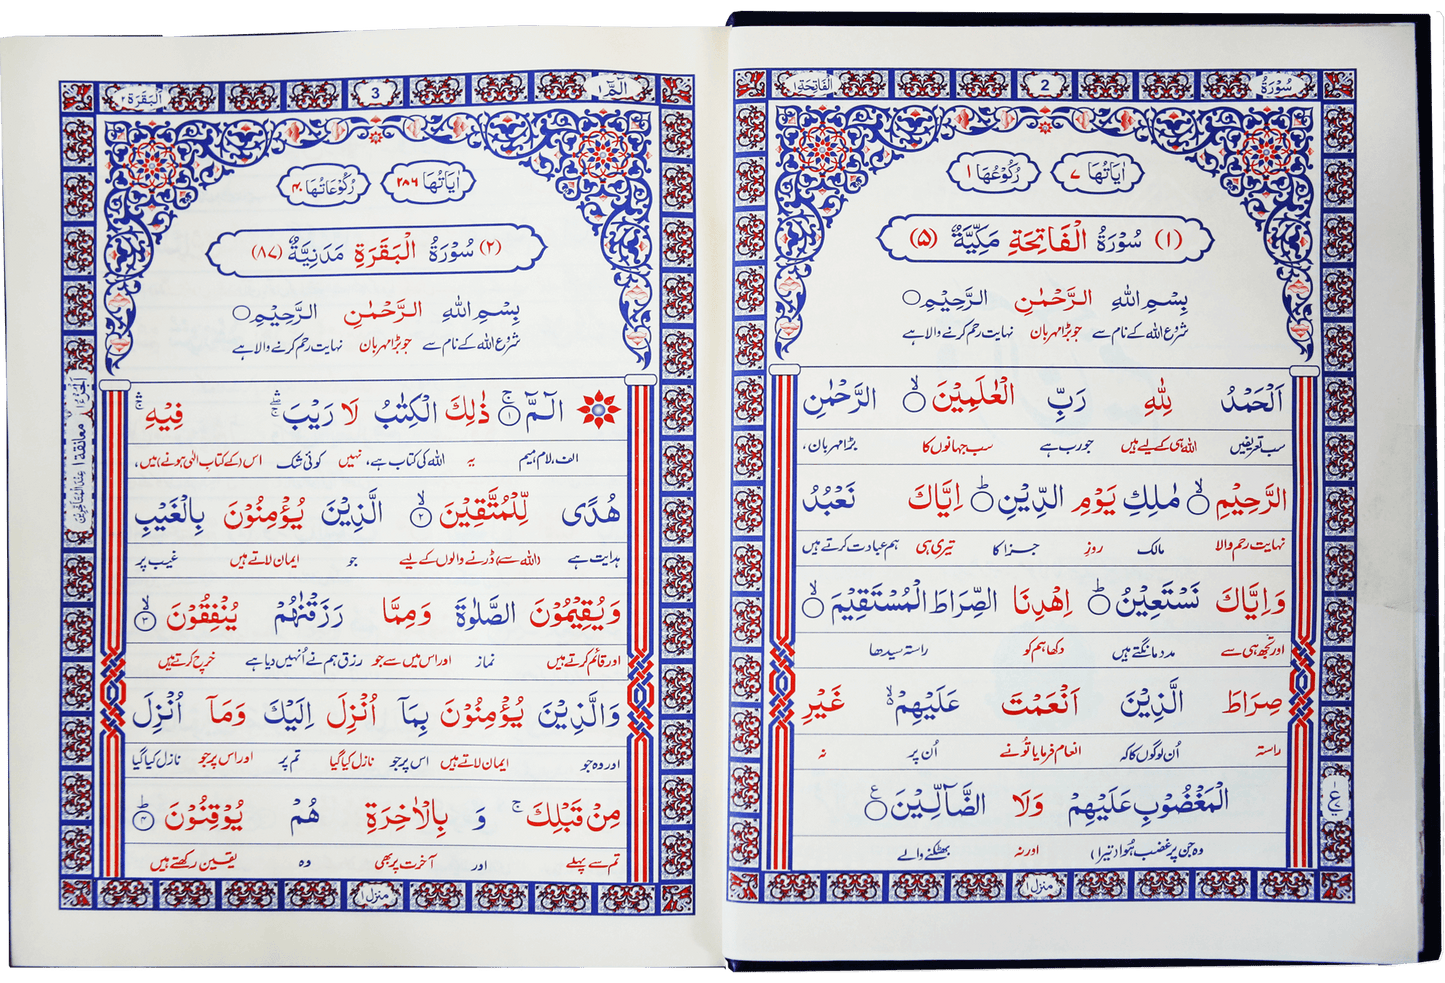 سُوۡرَةُ
2
اَلۡفَاتِحَة ١
اٰيَاتُهَا ٧
رُكُوۡعُهَا ١
(١) سُوۡرَةُ الۡفَاتِحَةِ مَكِّيَّةٌ (٥)
بِسۡمِ اللّٰهِ الرَّحۡمٰنِ الرَّحِيۡمِ
شروع اللہ کے نام سے جو بڑا مہربان نہایت رحم کرنے والا ہے
اَلۡحَمۡدُ لِلّٰهِ رَبِّ الۡعٰلَمِيۡنَ ۙ الرَّحۡمٰنِ
سب تعریفیں اللہ ہی کے لیے ہیں جو رب ہے سب جہانوں کا بڑا مہربان،
الرَّحِيۡمِ ۙ مٰلِكِ يَوۡمِ الدِّيۡنِ ؕ اِيَّاكَ نَعۡبُدُ
نہایت رحم والا مالک روزِ جزا کا تیری ہی ہم عبادت کرتے ہیں
وَاِيَّاكَ نَسۡتَعِيۡنُ ؕ اِهۡدِنَا الصِّرَاطَ الۡمُسۡتَقِيۡمَ ۙ
اور تجھ ہی سے مدد مانگتے ہیں دکھا ہم کو راستہ سیدھا
صِرَاطَ الَّذِيۡنَ اَنۡعَمۡتَ عَلَيۡهِمۡ ۙ غَيۡرِ
راستہ اُن لوگوں کا کہ انعام فرمایا تُو نے اُن پر نہ
الۡمَغۡضُوۡبِ عَلَيۡهِمۡ وَلَا الضَّآلِّيۡنَ
وہ جن پر غضب ہُوا (تیرا) اور نہ بھٹکنے والے
منزل ١
الٓمّٓ ١
3
اَلۡبَقَرَة ٢
اٰيَاتُهَا ٢٨٦
رُكُوۡعَاتُهَا ٤٠
(٢) سُوۡرَةُ الۡبَقَرَةِ مَدَنِيَّةٌ (٨٧)
بِسۡمِ اللّٰهِ الرَّحۡمٰنِ الرَّحِيۡمِ
شروع اللہ کے نام سے جو بڑا مہربان نہایت رحم کرنے والا ہے
الٓمّٓ ۚ ١ ذٰلِكَ الۡكِتٰبُ لَا رَيۡبَ ۛۚ فِيۡهِ ۛۚ
الف، لام، میم یہ اللہ کی کتاب ہے، نہیں کوئی شک اس (کے کتاب الٰہی ہونے) میں،
هُدًى لِّلۡمُتَّقِيۡنَ ۙ ٢ الَّذِيۡنَ يُؤۡمِنُوۡنَ بِالۡغَيۡبِ
ہدایت ہے (اللہ سے) ڈرنے والوں کے لیے جو ایمان لاتے ہیں غیب پر
وَيُقِيۡمُوۡنَ الصَّلٰوةَ وَمِمَّا رَزَقۡنٰهُمۡ يُنۡفِقُوۡنَ ۙ ٣
اور قائم کرتے ہیں نماز اور اس میں سے جو رزق ہم نے اُنہیں دیا ہے خرچ کرتے ہیں
وَالَّذِيۡنَ يُؤۡمِنُوۡنَ بِمَآ اُنۡزِلَ اِلَيۡكَ وَمَآ اُنۡزِلَ
اور وہ جو ایمان لاتے ہیں اس پر جو نازل کیا گیا تم پر اور اس پر جو نازل کیا گیا
مِنۡ قَبۡلِكَ ۚ وَ بِالۡاٰخِرَةِ هُمۡ يُوۡقِنُوۡنَ ؕ ٤
تم سے پہلے اور آخرت پر بھی وہ یقین رکھتے ہیں
منزل ١
معانقة ١